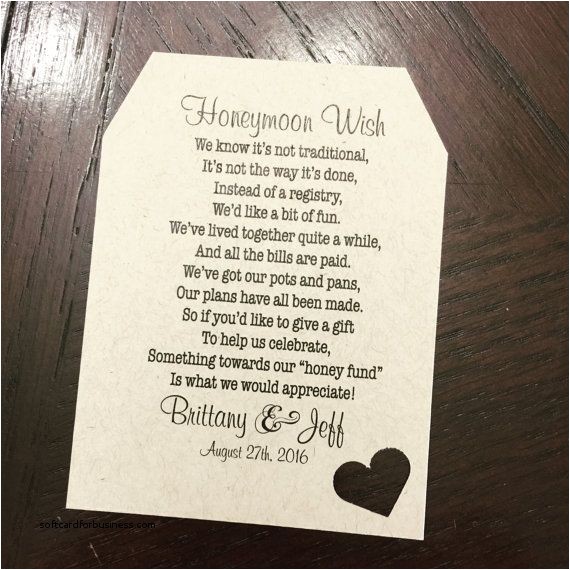 Honeymoon Wish
We know it's not traditional,
It's not the way it's done,
Instead of a registry,
We'd like a bit of fun.
We've lived together quite a while,
And all the bills are paid.
We've got our pots and pans,
Our plans have all been made.
So if you'd like to give a gift
To help us celebrate,
Something towards our "honey fund"
Is what we would appreciate!
Brittany & Jeff
August 27th, 2016
softcardforbusiness.com